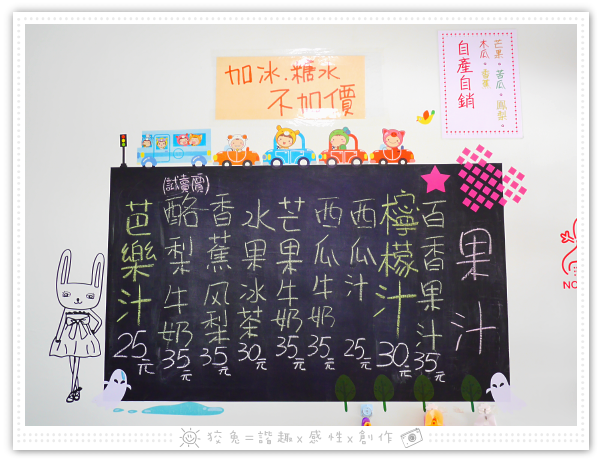 加冰.糖水
不加價
芒果。苦瓜。鳳梨。
木瓜。香蕉
自產自銷
果汁
百香果汁35元
檸檬汁30元
西瓜汁25元
西瓜牛奶35元
芒果牛奶35元
水果冰茶30元
香蕉风梨35元
(試賣價)
酪梨牛奶35元
芭樂汁25元
NO
狡兔=諧趣x感性x創作